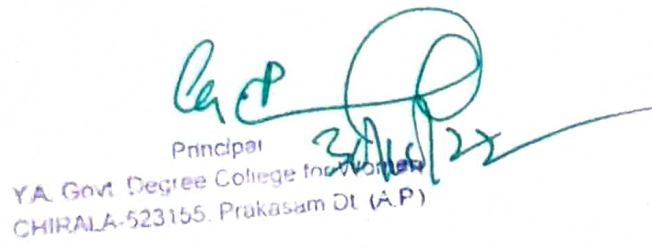 Principal
Y.A. Govt Degree College for Women
CHIRALA-523155. Prakasam Dt. (A.P)